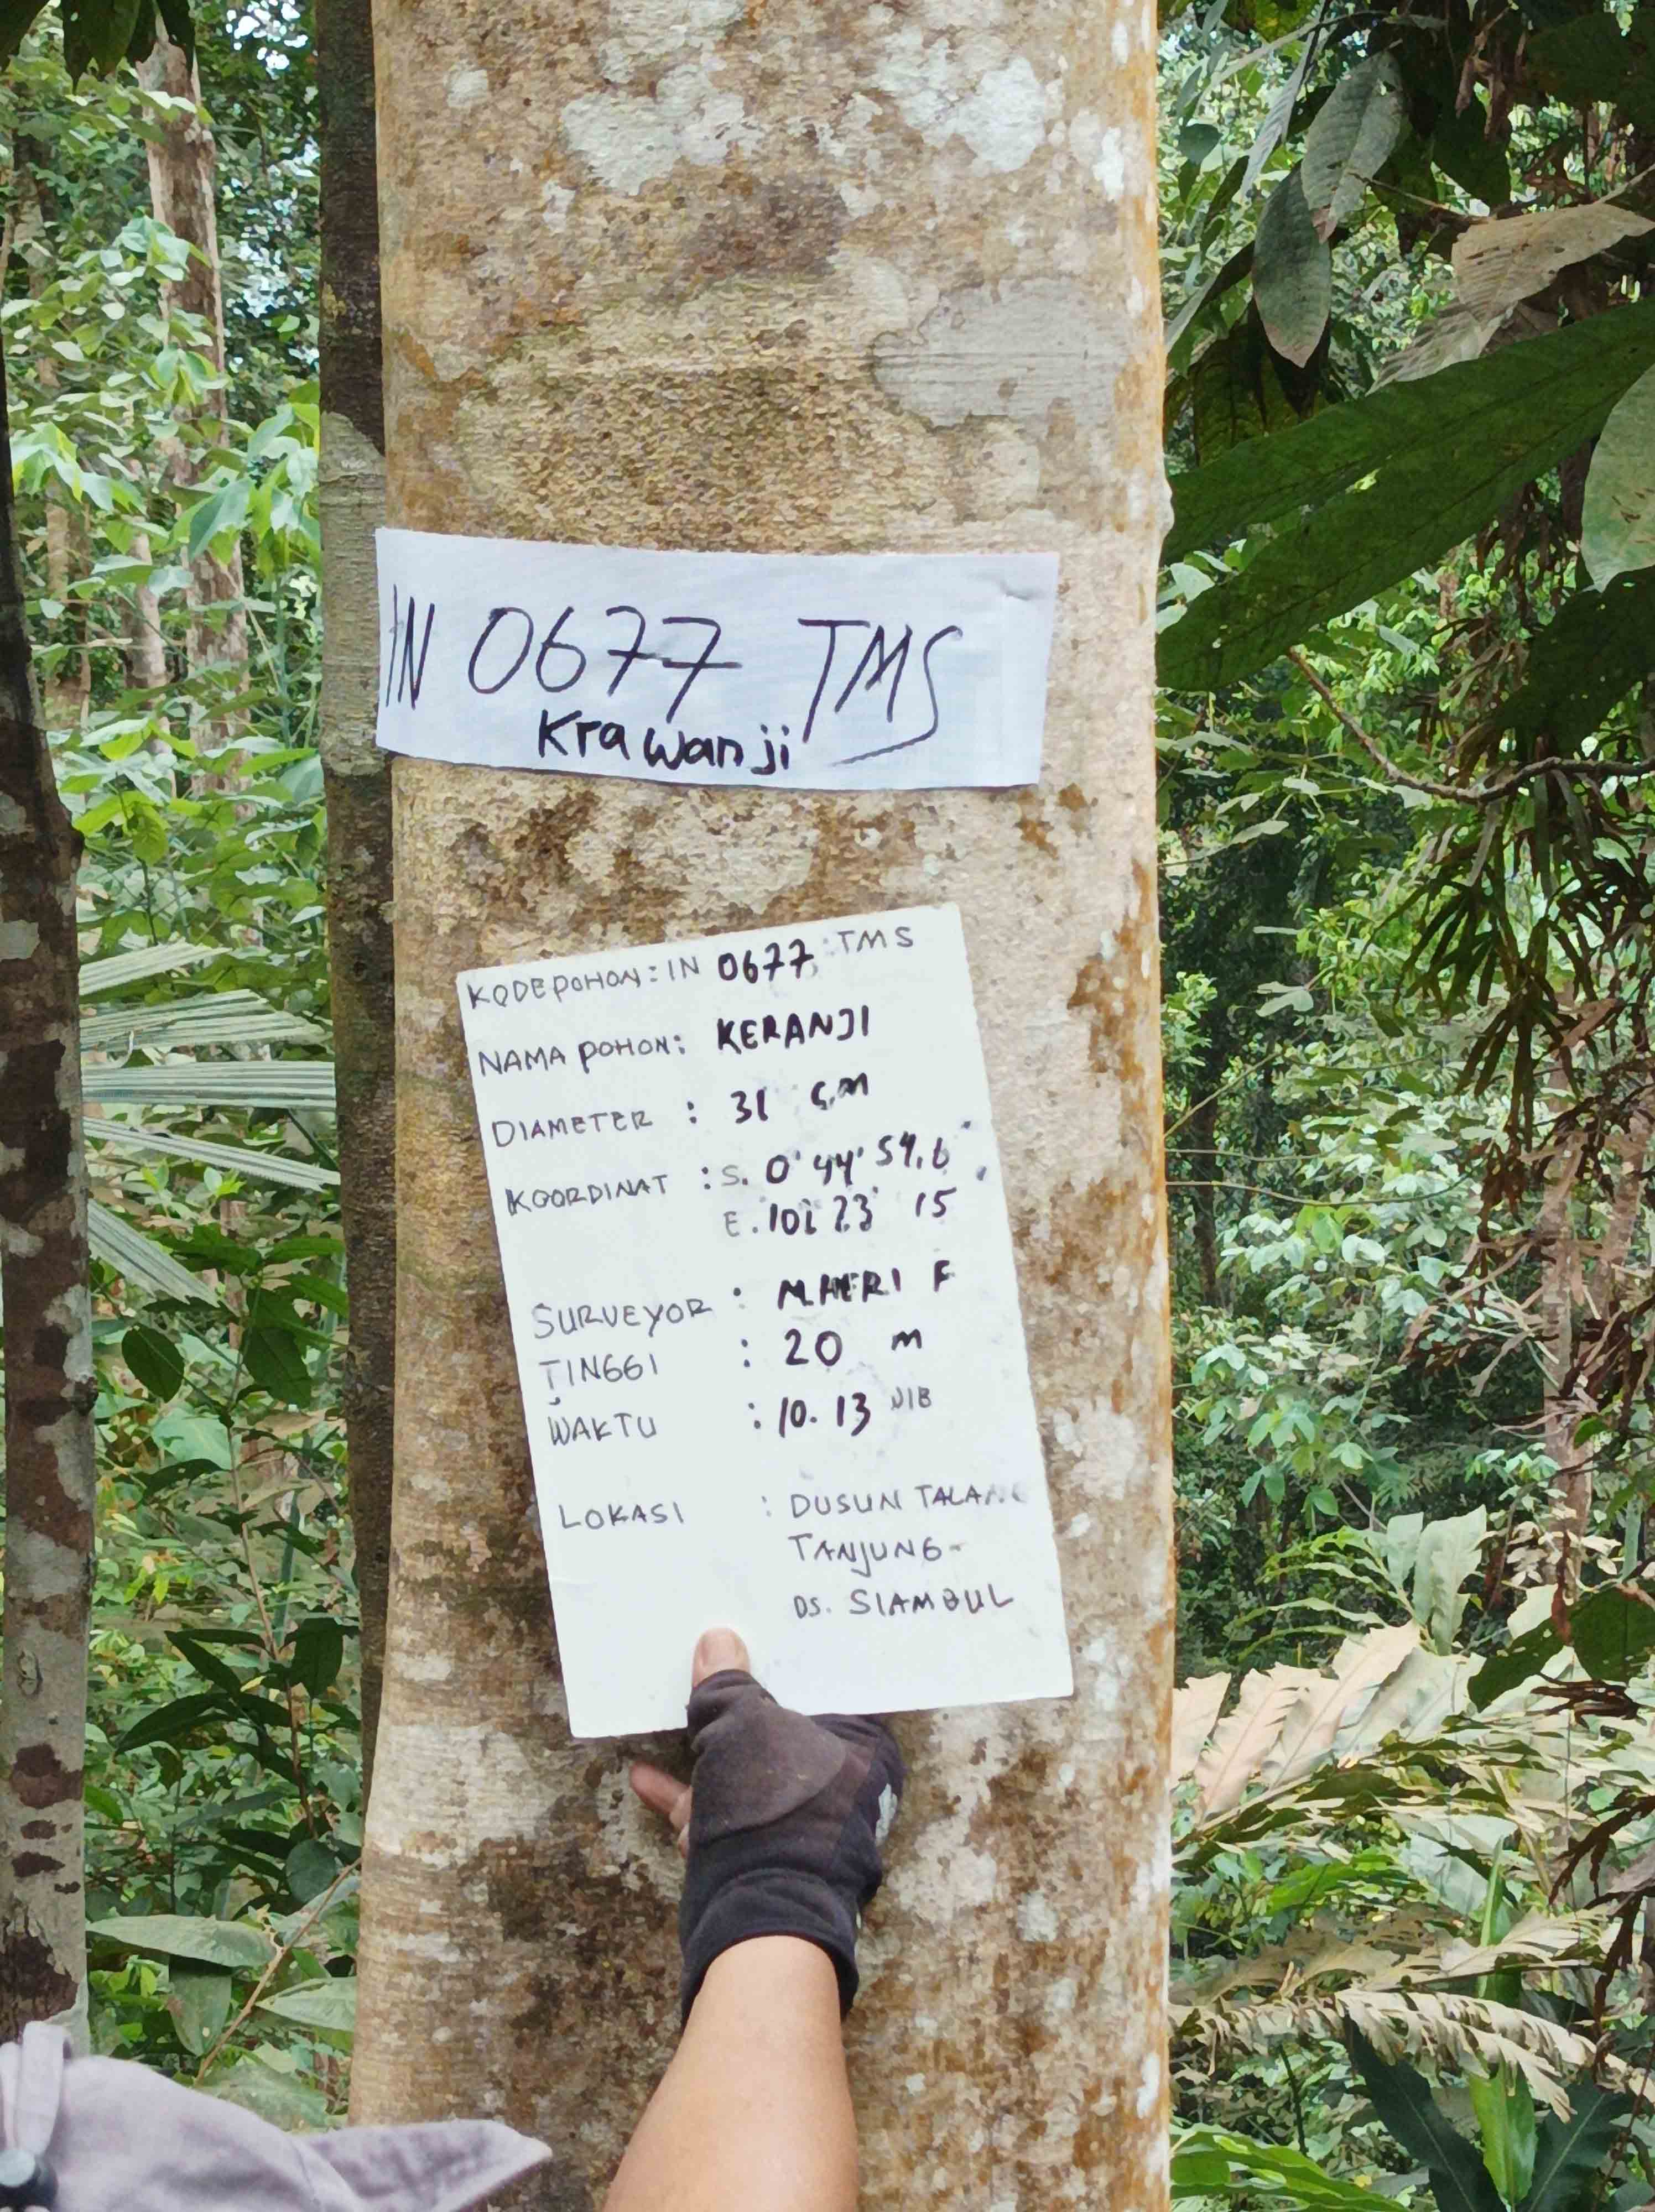 IN 0677 TMS
Krawanji
KODE POHON: IN 0677 TMS
NAMA POHON: KERANJI
DIAMETER : 31 CM
KOORDINAT : S. 0° 44' 59,6"
E. 102° 23' 15"
SURVEYOR : M.HERI F
TINGGI : 20 m
WAKTU : 10.13 WIB
LOKASI : DUSUN TALANG
TANJUNG-
DS. SIAMBUL